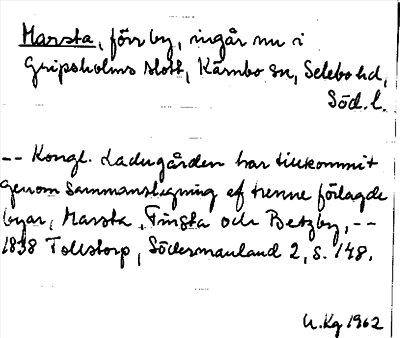 Marsta, förr by, ingår nu i
Gripsholms slott, Kärnbo sn, Selebo hd,
Söd. l.
-- Kongl. Ladugården har tillkommit
genom sammanslagning af trenne förlagde
byar, Marsta, Tingsta och Betzby, --
1838 Tollstorp, Södermanland 2, s. 148.
U.Kg 1962